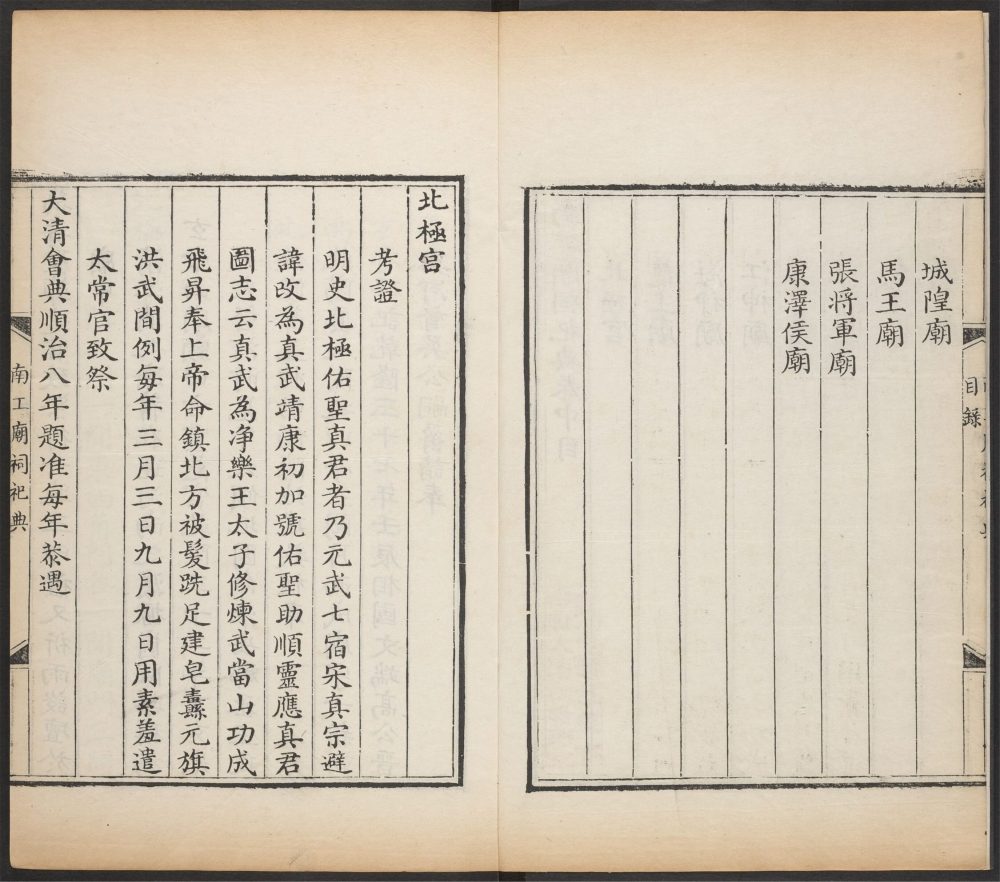 目錄
城隍廟
馬王廟
張將軍廟
康澤侯廟
北極宮
考證
明史北極佑聖真君者乃元武七宿宋真宗避
諱改為真武靖康初加號佑聖助順靈應真君
圖志云真武為净樂王太子修煉武當山功成
飛昇奉上帝命鎮北方被髮跣足建皂纛元旗
洪武間例每年三月三日九月九日用素羞遣
太常官致祭
大清會典順治八年題准每年恭遇
南工廟祠祀典